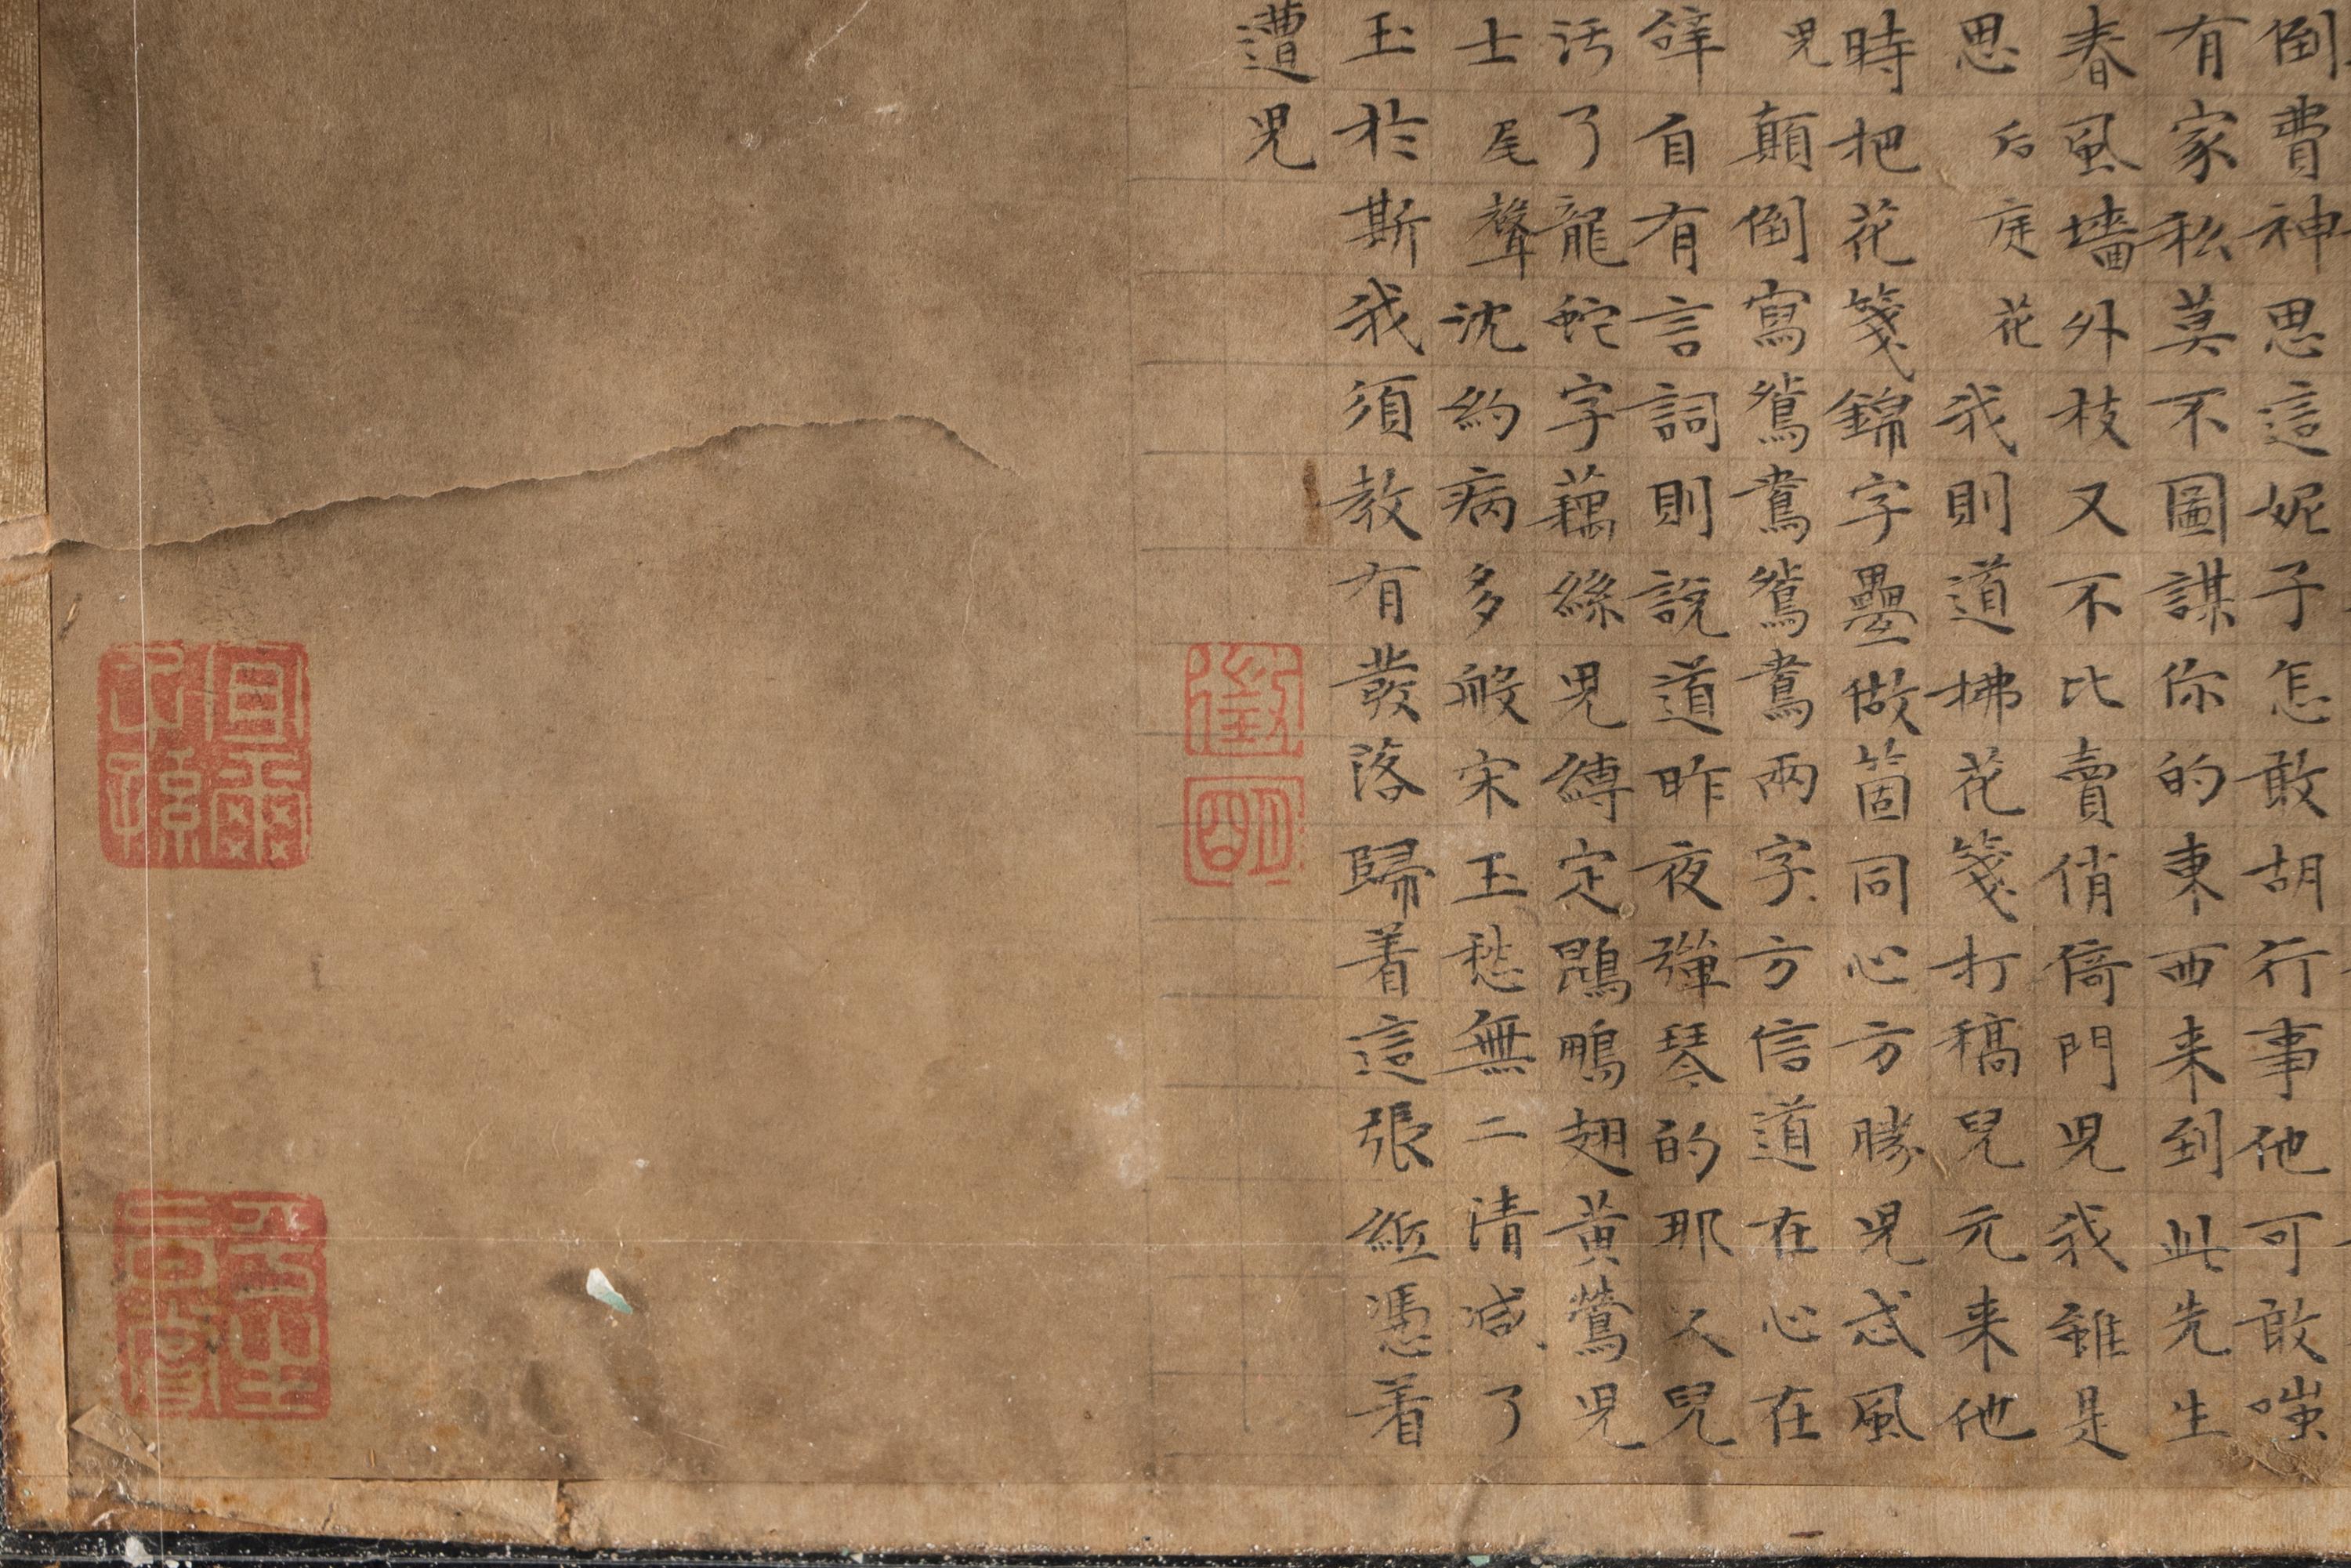 倒費神思這妮子怎敢胡行事他可敢嗤
有家私莫不圖謀你的東西来到此先生
春風墻外枝又不比賣俏倚門児我雖是
思后庭花我則道拂花箋打稿兒元来他
時把花箋錦字疊做箇同心方勝児忒風
児顛倒寫鴛鴦鴛鴦兩字方信道在心在
聲自有言詞則說道昨夜彈琴的那又兒
污了龍蛇字藕絲児縛定鵾鵬翅黃鶯児
士尾聲沈約病多般宋玉愁無二清減了
玉於斯我須教有發落歸着這張紙憑着
遭児
徵明
宜爾子孫